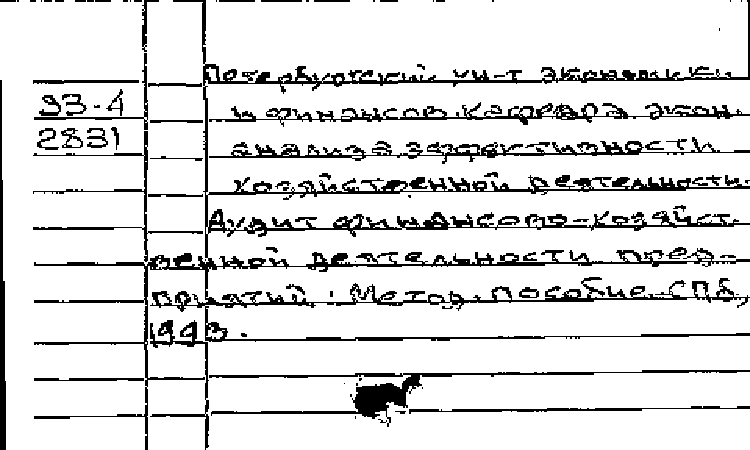 Петербургский ун-т экономики
93-4
и финансов. Кафедра экон.
2831
анализа эффективности
хозяйственной деятельности.
Аудит финансово-хозяйст-
венной деятельности пред-
приятий : Метод. пособие.-СПб,
1993.